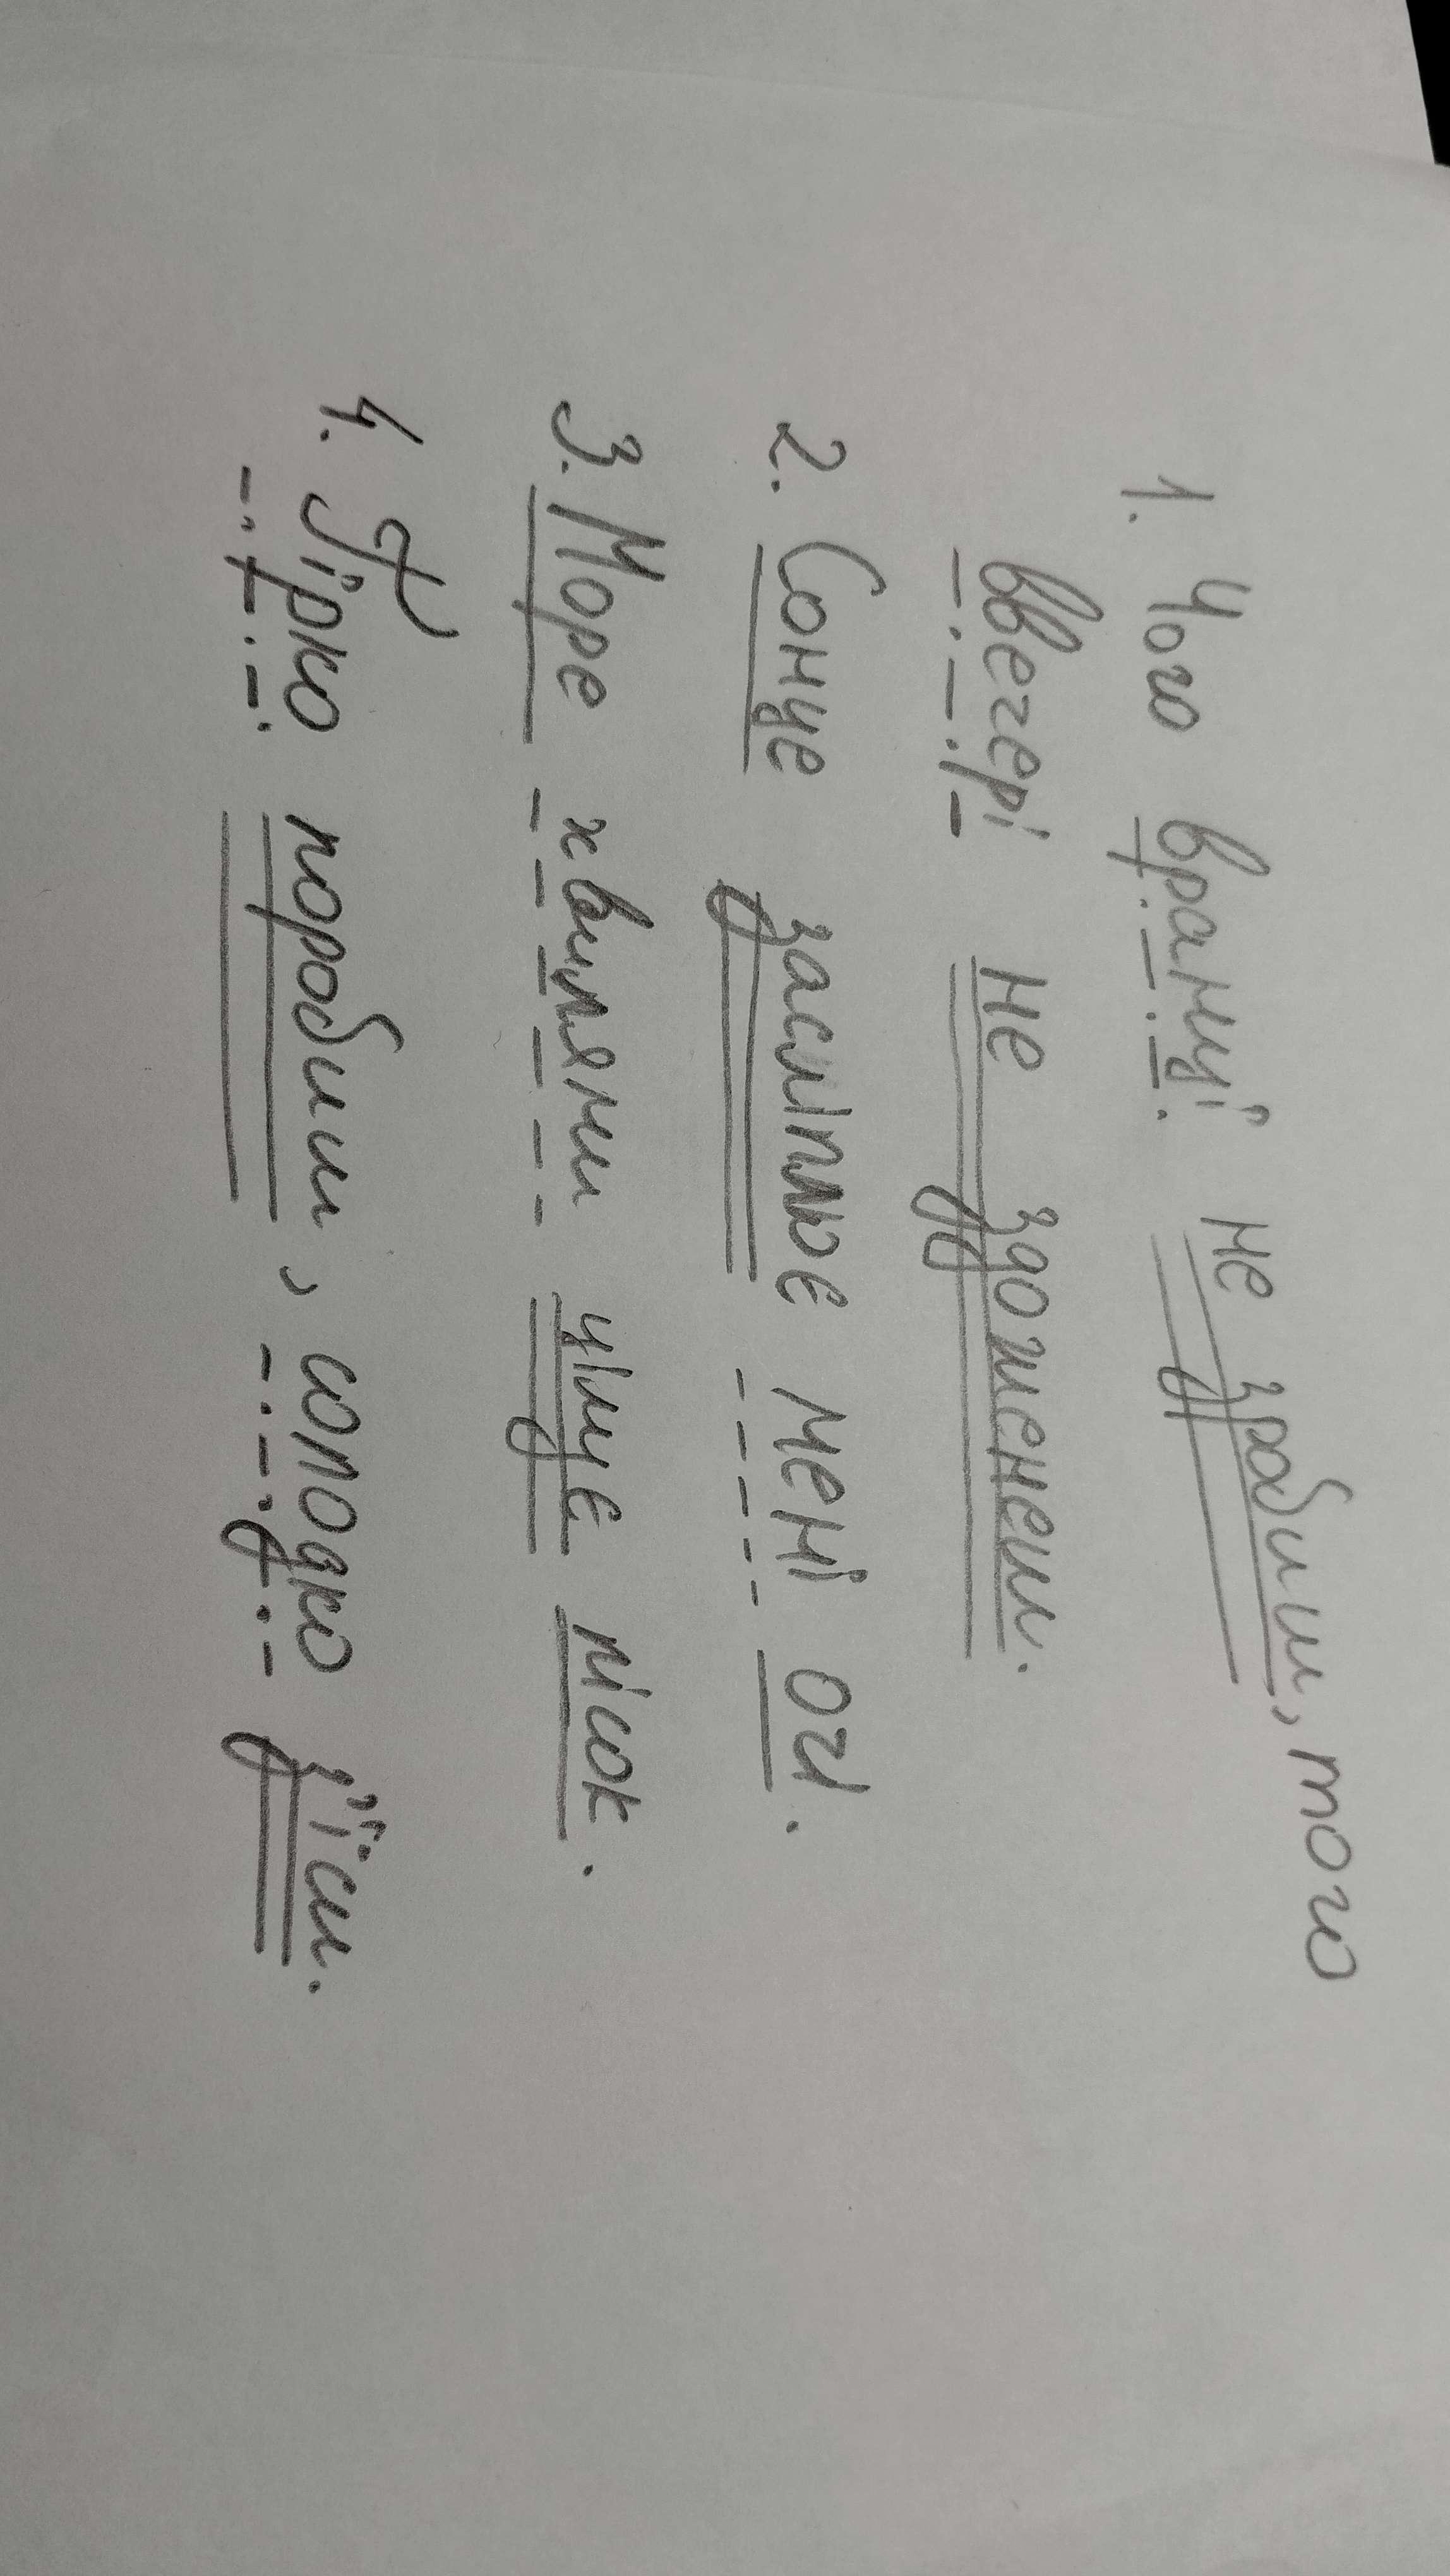 1. Чого вранці не зробиш, того
ввечері не здоженеш.
2. Сонце засліплює мені очі.
3. Море хвилями цілує пісок.
4. Гірко поробиш, солодко з'їси.